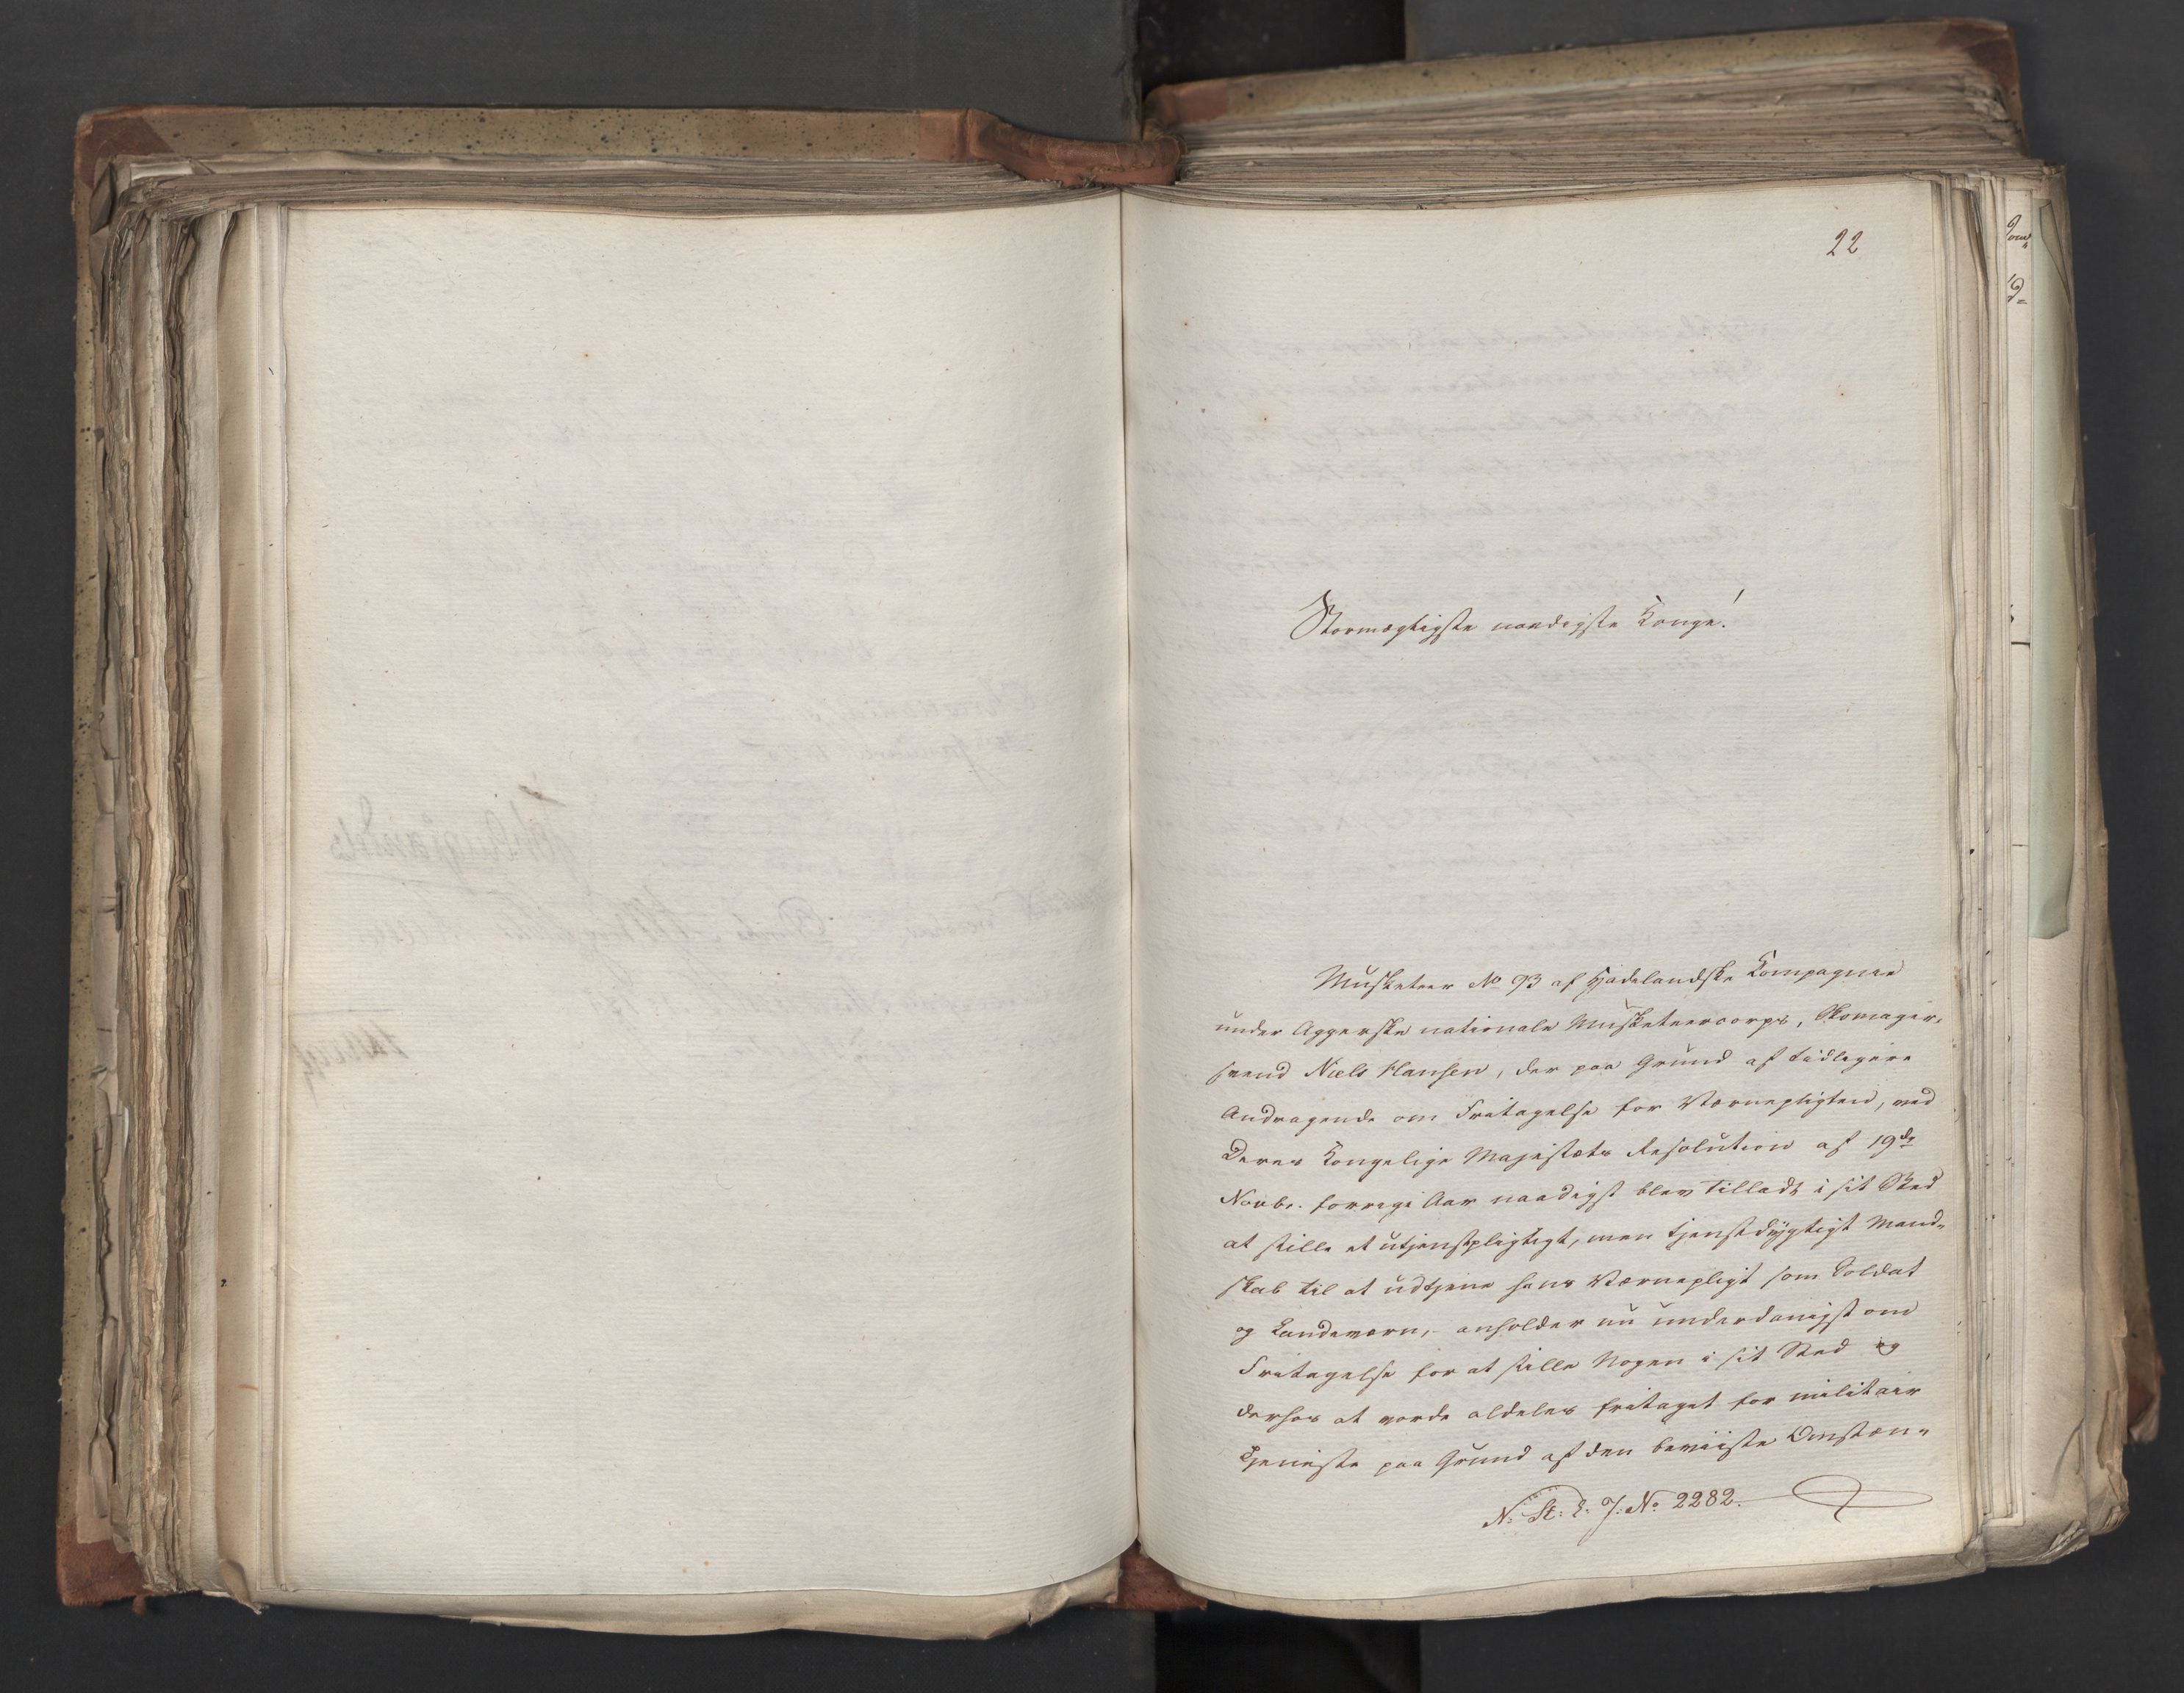 22
Stormægtigste naadigste Konge!
Musketeer No 93 af Hadelandske Compagnie
under Aggerske nationale Musketeercorps, Skomager-
svend Niels Hansen, der paa Grund af tidligere
Andragende om Fritagelse for Værnepligten, ved
Deres Kongelige Majestæts Resolution af 19de
Novbr. forrige Aar naadigst blev tilladt i sit Sted
at stille et utjenstpligtigt, men tjenstdygtigt Mand-
skab til at udtjene hans Værnepligt som Soldat
og Landeværn, anholder nu underdanigst om
Fritagelse for at stille Nogen i sit Sted og
derhos at vorde aldeles fritaget for militair
Tjeneste paa Grund af den beviiste Omstæn-
N: St: E: J: No. 2282.